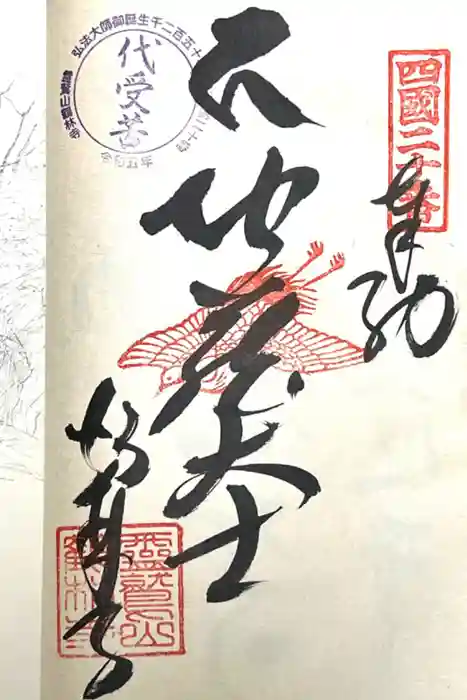 四國二十番
奉納
地蔵大士
弘法大師御誕生千二百五十
代受苦
令和五年
靈鷲山鶴林寺
鶴林寺
靈鷲山
鶴林寺